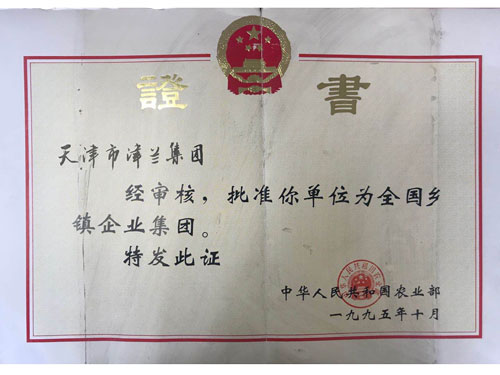 證書
天津市津兰集团
经审核，批准你单位为全国乡
镇企业集团。
特发此证
中华人民共和国农业部
一九九五年十月